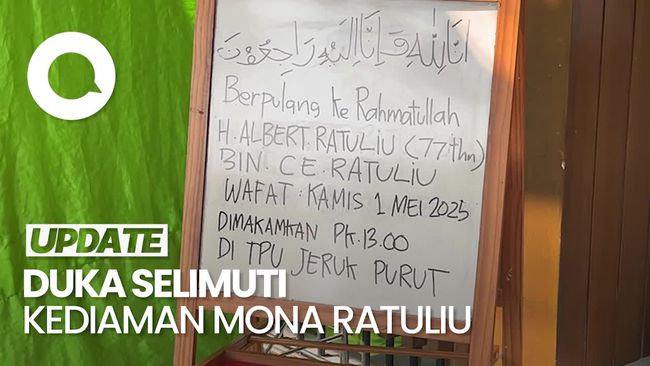 اناللّٰه وَاِنَّااِلَيْهِ رَاجِعُوْنَ
Berpulang ke Rahmatullah
H. ALBERT. RATULIU (77 thn)
BIN. C E. RATULIU
WAFAT : KAMIS 1 MEI 2025
DIMAKAMKAN PK. 13.00
DI TPU JERUK PURUT
UPDATE
DUKA SELIMUTI
KEDIAMAN MONA RATULIU